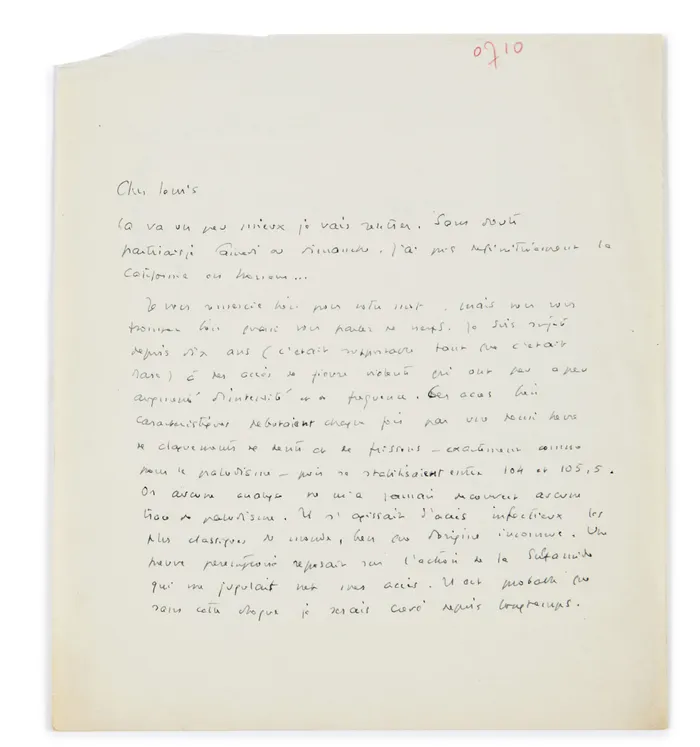 0710
Cher Louis
Ca va un peu mieux je vais rentrer. Sans doute
partirai-je samedi ou dimanche. J'ai pris définitivement la
Californie en horreur...
Je vous remercie bien pour votre mot. Mais vous vous
trompez bien quand vous parlez de nerfs. Je suis sujet
depuis dix ans (c'était supportable tant que c'était
rare) à des accès de fièvre violente qui ont peu à peu
augmenté d'intensité et de fréquence. Ces accès bien
caractéristiques débutaient chaque fois par une demi heure
de claquements de dents et de frissons - exactement comme
pour le paludisme - puis se stabilisaient entre 104 et 105,5.
Or aucune analyse ne m'a jamais découvert aucune
trace de paludisme. Il s'agissait d'accès infectieux les
plus classiques du monde, bien que d'origine inconnue. Une
preuve péremptoire reposait sur l'action de la Sulfamide
qui me jugulait net mes accès. Il est probable que
sans cette drogue je serais crevé depuis longtemps.